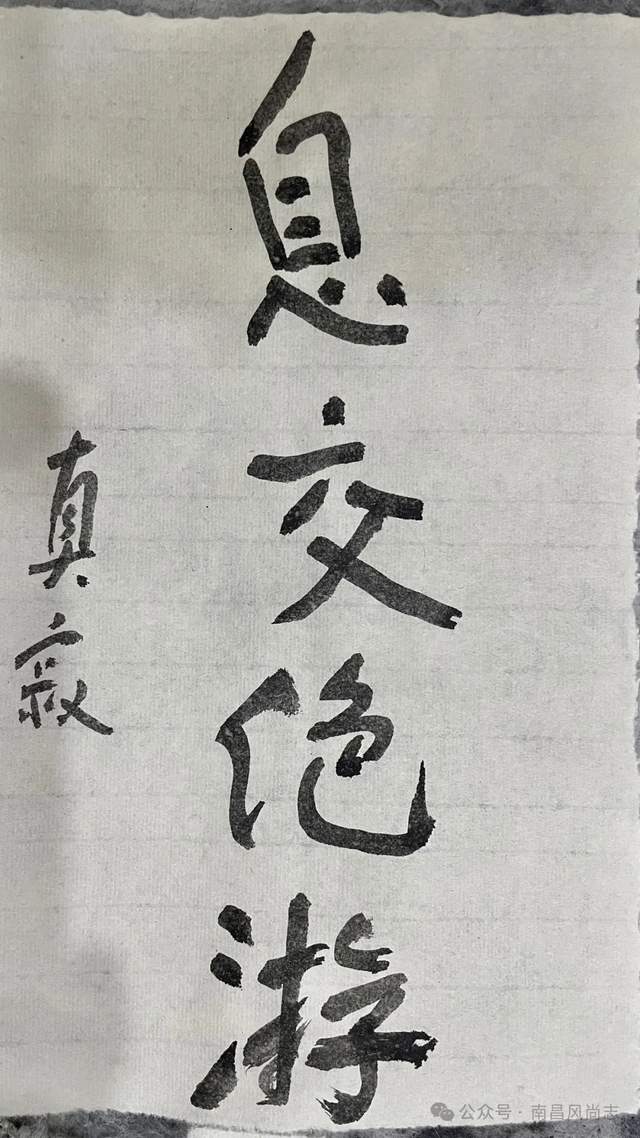 息交绝游
真寂
公众号·南昌风尚志